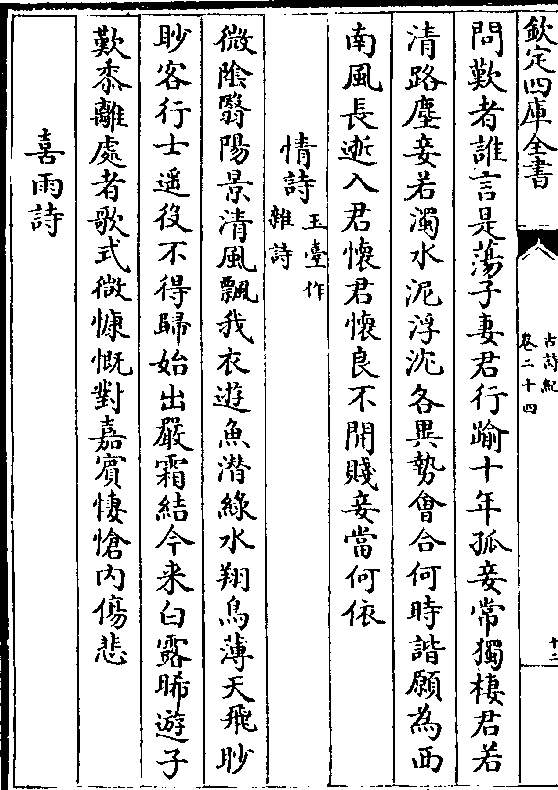 欽定四庫全書
古詩紀
卷二十四
十二
問歎者誰言是蕩子妻君行踰十年孤妾常獨棲君若
清路塵妾若濁水泥浮沈各異勢會合何時諧願為西
南風長逝入君懷君懷良不開賤妾當何依
情詩
玉臺作
雜詩
微陰翳陽景清風飄我衣遊魚潛綠水翔鳥薄天飛眇
眇客行士遥役不得歸始出嚴霜結今来白露晞遊子
歎黍離處者歌式微慷慨對嘉賓悽愴內傷悲
喜雨詩